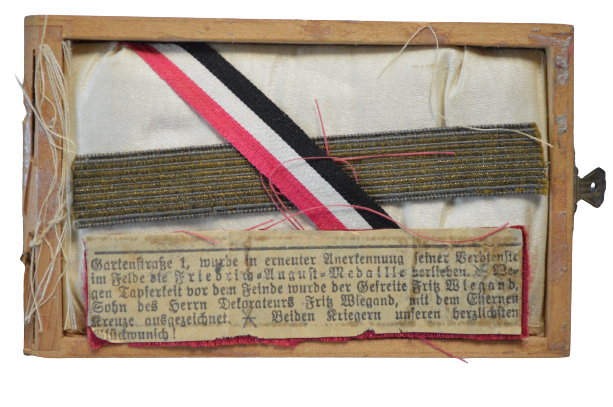 Gartenstraße 1, wurde in erneuter Anerkennung seiner Verdienste
im Felde die Friedrich-August-Medaille verliehen. ✕ We-
gen Tapferkeit vor dem Feinde wurde der Gefreite Fritz Wiegand,
Sohn des Herrn Dekorateurs Fritz Wiegand, mit dem Eisernen
Kreuze ausgezeichnet. ✕ Beiden Kriegern unseren herzlichsten
Glückwunsch!